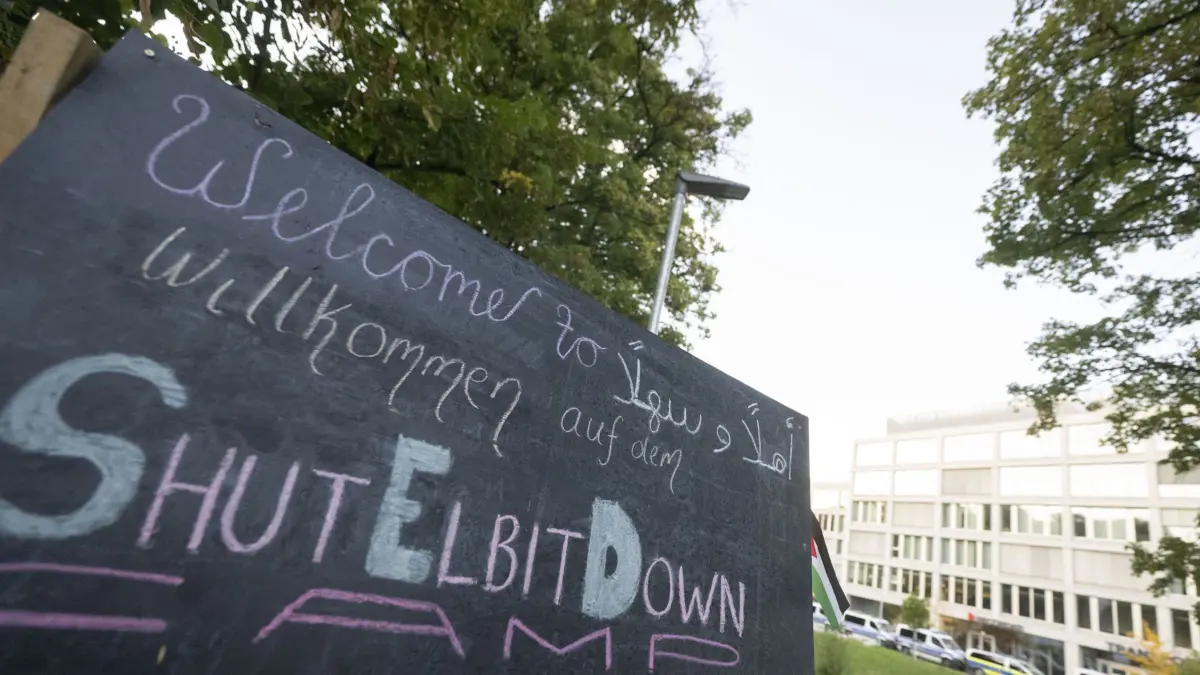 Welcome to
أهلاً و سهلاً
Willkommen auf dem
SHUTELBITDOWN
CAMP